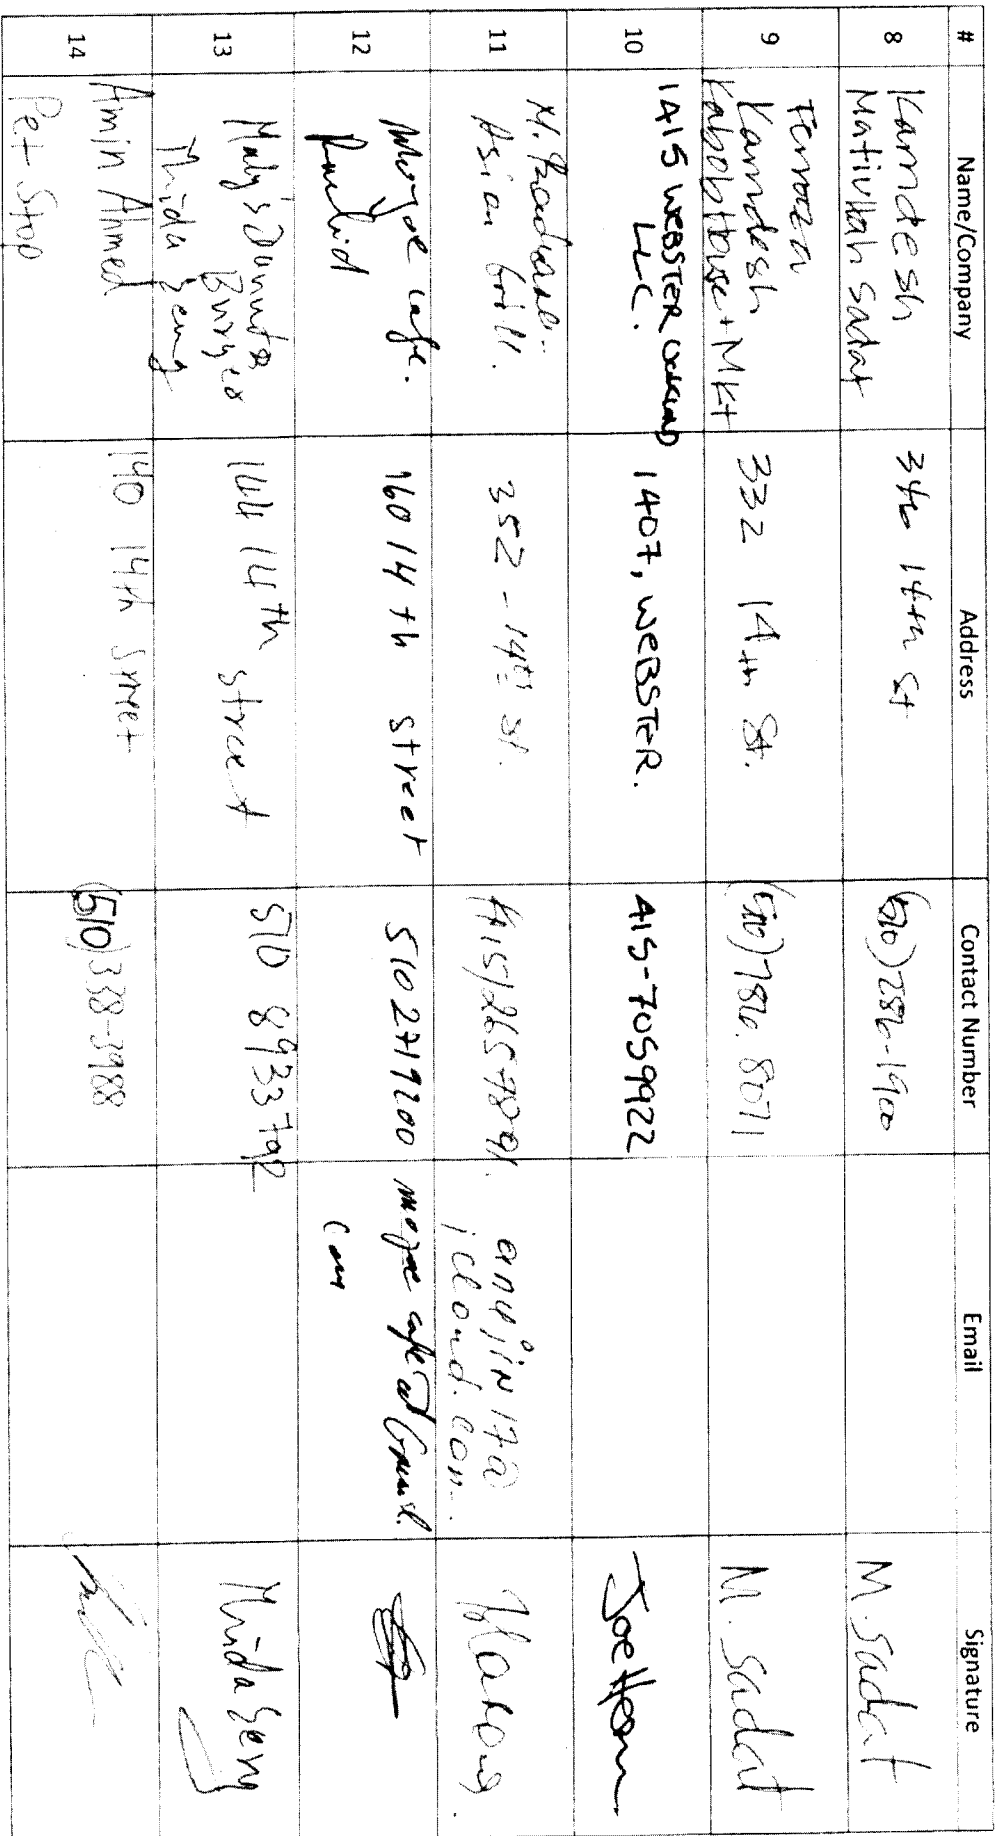 # Name/Company Address Contact Number Email Signature
8 Kamdesh
Matiullah Sadat 346 14th St (510) 286-1900 M. Sadat
9 Feroozan
Kamdesh
Kabob House + Mkt 332 14th St. (510) 786. 8071 M. Sadat
10 1415 WEBSTER OAKLAND
LLC. 1407, WEBSTER. 415-7059922 Joe
11 M.
Asian Grill. 352 - 14th St. (415)
icloud.com.
12 cafe.
160 14th street 510 2719200 cafe at Gmail.
com
13 Donuts
Burger
Thida Seng 144 14th street 510 8933792 Thida Seng
14 Amin Ahmed
Pet Stop 140 14th Street (510) 338-3988